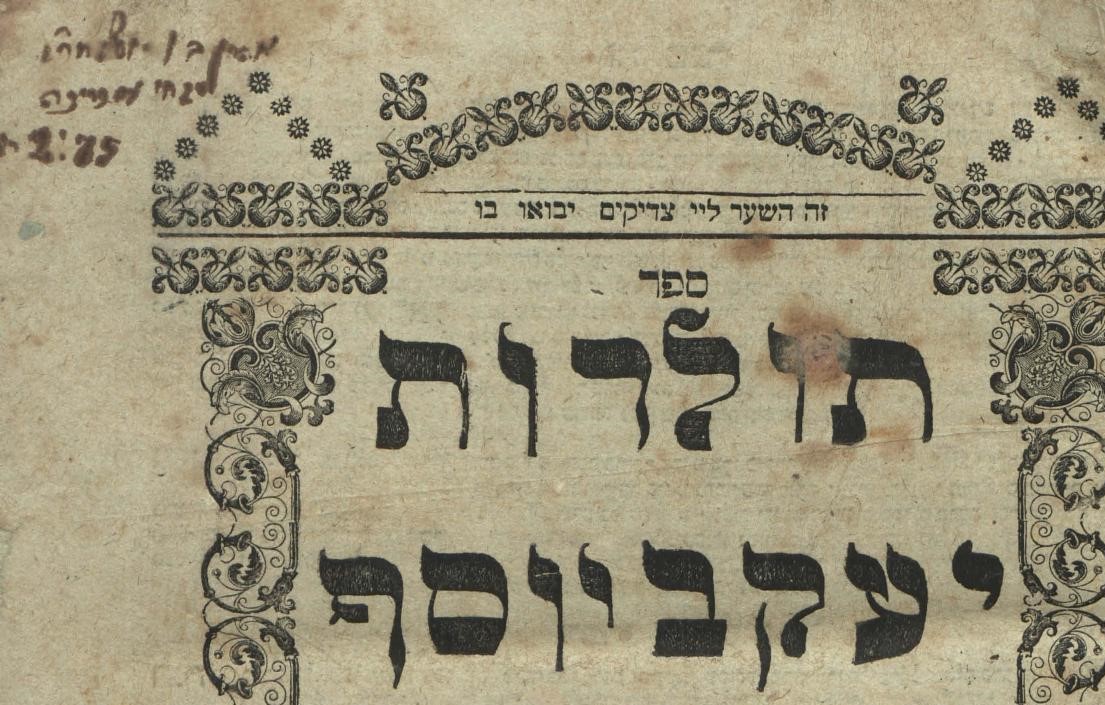 זה השער ליי צדיקים יבואו בו
ספר
תולדות
יעקב יוסף
2:75